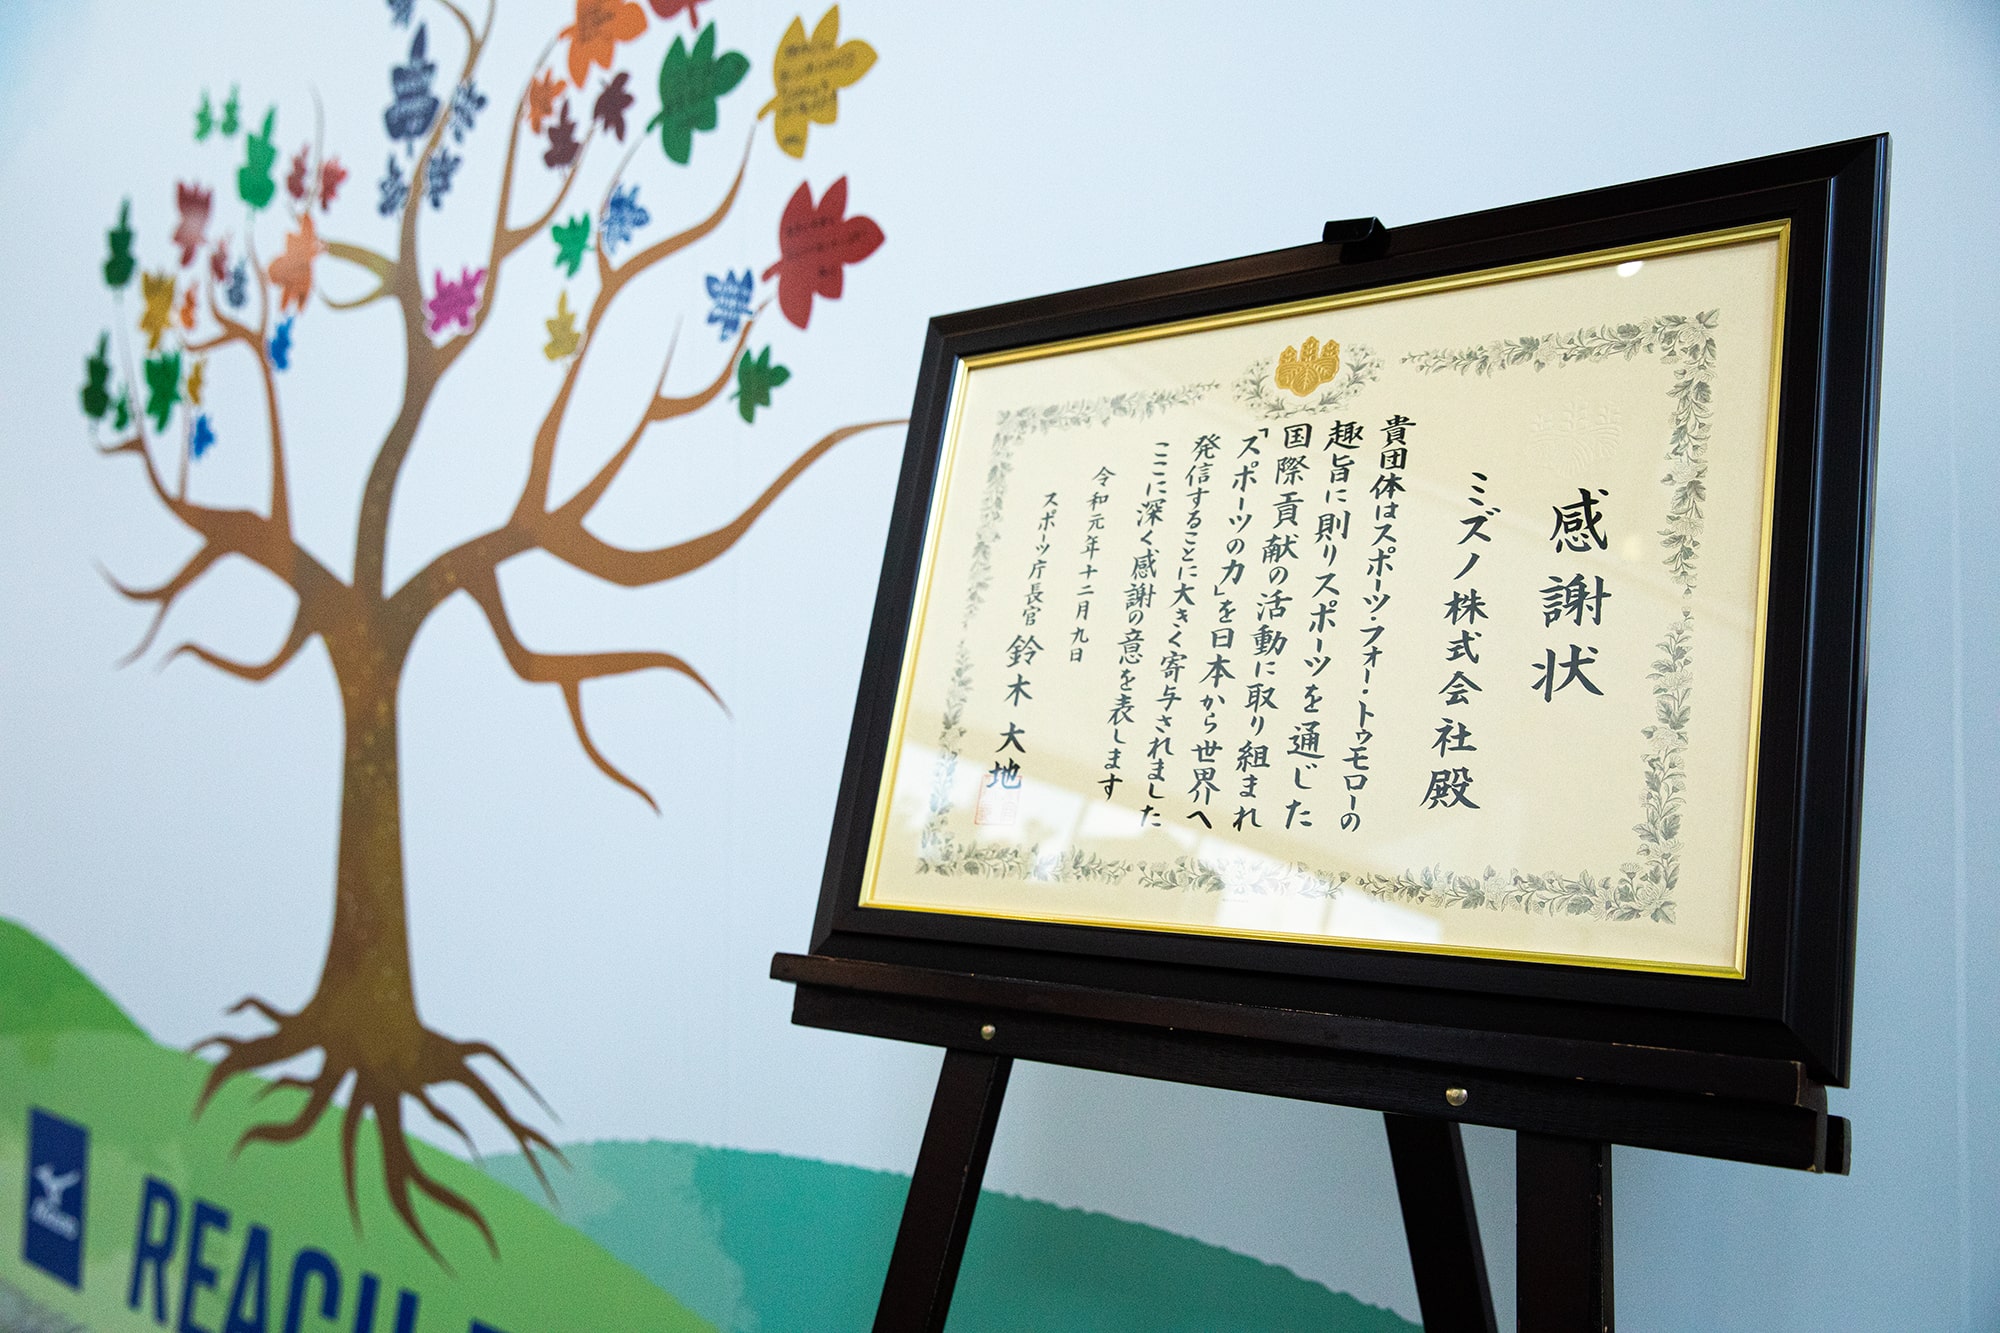 感謝状
ミズノ株式会社殿
貴団体はスポーツ・フォー・トゥモローの
趣旨に則りスポーツを通じた
国際貢献の活動に取り組まれ
「スポーツの力」を日本から世界へ
発信することに大きく寄与されました
ここに深く感謝の意を表します
令和元年十二月九日
スポーツ庁長官 鈴木大地
REACH